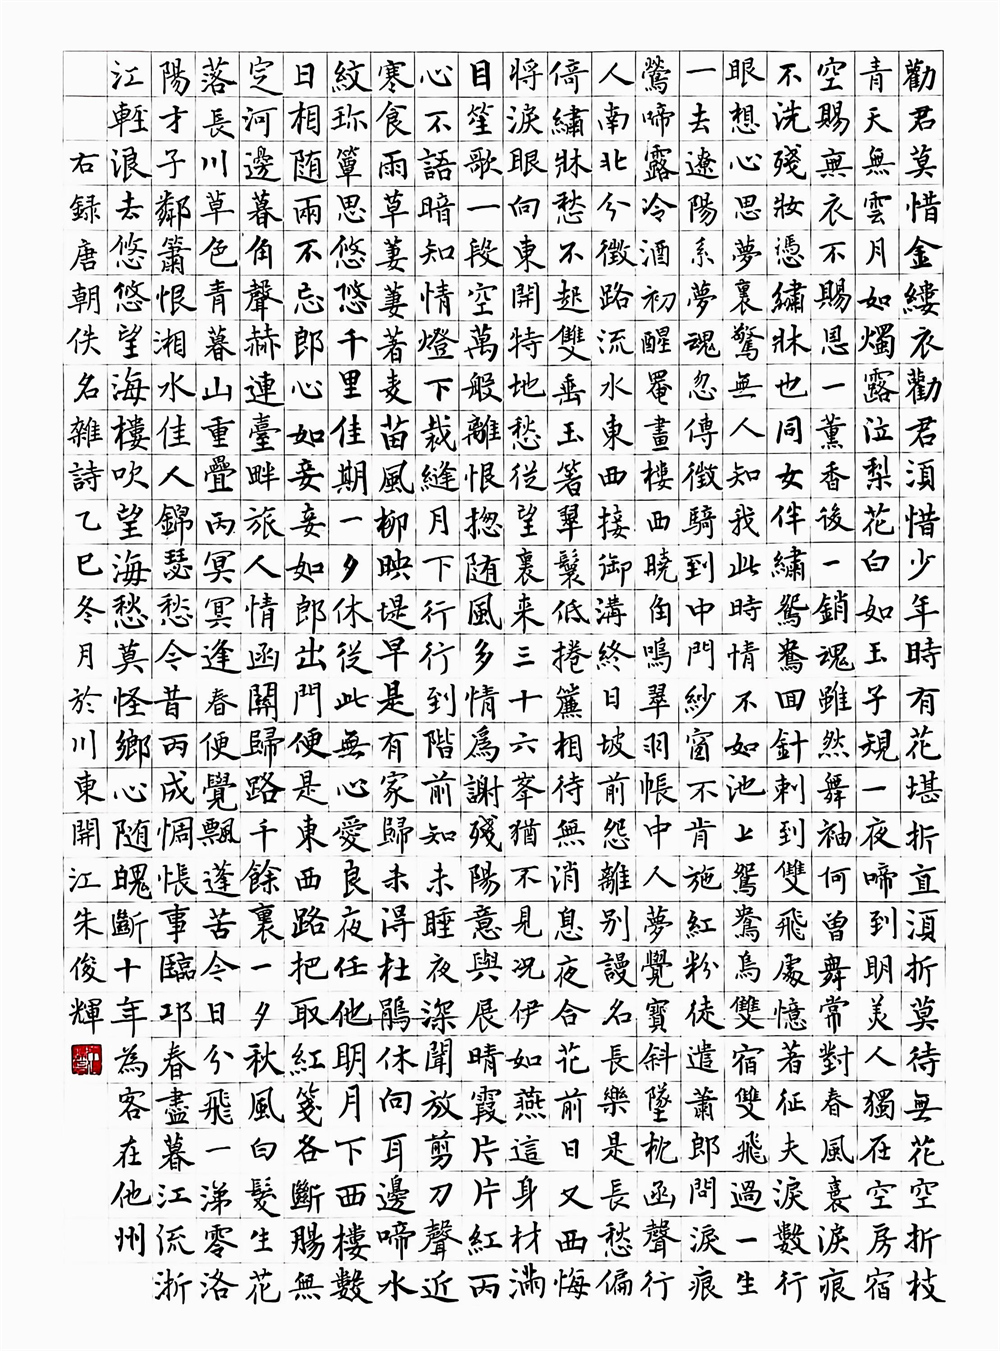 勸君莫惜金縷衣勸君須惜少年時有花堪折直須折莫待無花空折枝
青天無雲月如燭露泣梨花白如玉子規一夜啼到明美人獨在空房宿
空賜無衣不賜恩一薰香後一銷魂雖然舞袖何曾舞常對春風裏淚痕
不洗殘妝憑繡牀也同女伴繡鴛鴦回針刺到雙飛處憶著征夫淚數行
眼想心思夢裏驚無人知我此時情不如池上鴛鴦鳥雙宿雙飛過一生
一去遼陽系夢魂忽傳徵騎到中門紗窗不肯施紅粉徒遣蕭郎問淚痕
鶯啼露冷酒初醒罨畫樓西曉角鳴翠羽帳中人夢覺寶斜墜枕函聲行
人南北分徵路流水東西接御溝終日坡前怨離別謾名長樂是長愁偏
倚繡牀愁不起雙垂玉箸翠鬟低捲簾相待無消息夜合花前日又西悔
將淚眼向東開特地愁從望裏来三十六峯猶不見況伊如燕這身材滿
目笙歌一段空萬般離恨揔随風多情為謝殘陽意與展晴霞片片紅兩
心不語暗知情燈下裁縫月下行行到階前知未睡夜深聞放剪刀聲近
寒食雨草萋萋著麦苗風柳映堤早是有家歸未得杜鵑休向耳邊啼水
紋珎簟思悠悠千里佳期一夕休從此無心愛良夜任他明月下西樓數
日相随兩不忘郎心如妾妾如郎出門便是東西路把取紅箋各斷腸無
定河邊暮角聲赫連臺畔旅人情函關歸路千餘裏一夕秋風白髮生花
落長川草色青暮山重疊兩冥冥逢春便覺飄蓬苦今日分飛一涕零洛
陽才子鄰簫恨湘水佳人錦瑟愁今昔兩成惆悵事臨邛春盡暮江流浙
江輕浪去悠悠望海樓吹望海愁莫怪鄉心随魄斷十年為客在他州
右録唐朝佚名雜詩乙巳冬月於川東開江朱俊輝